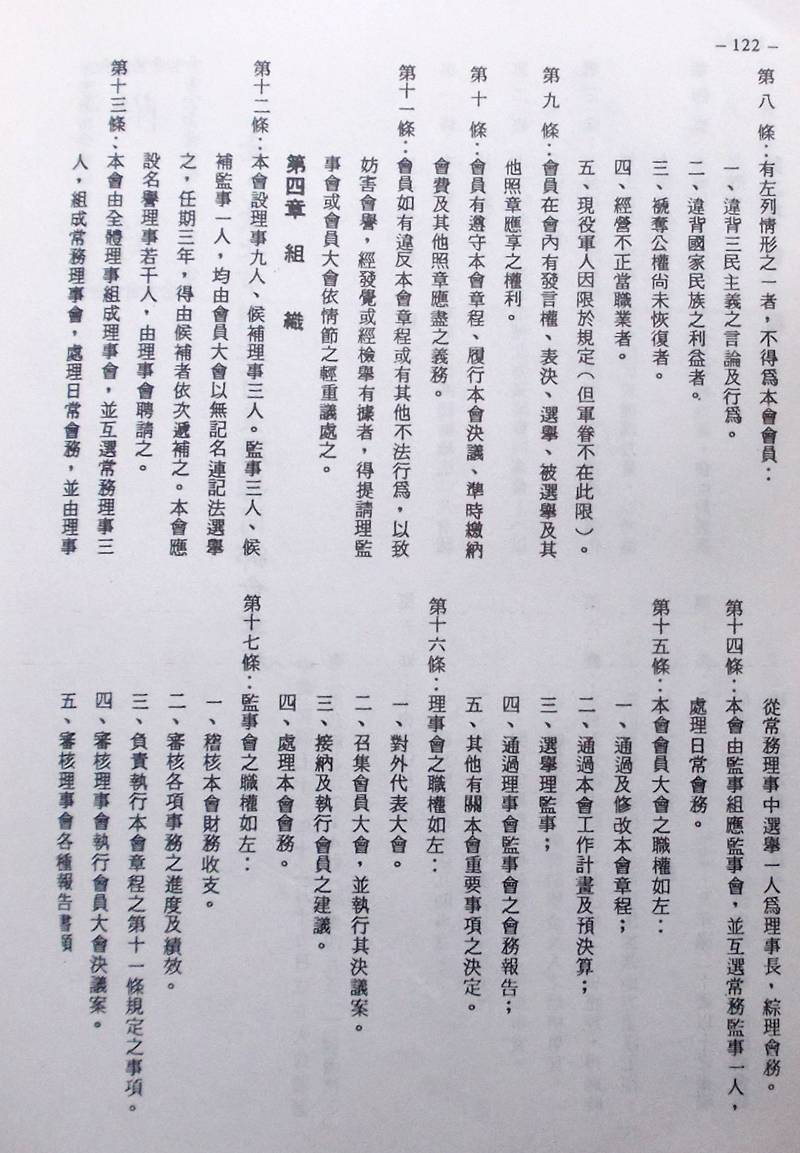 – 122 –
第八條：有左列情形之一者，不得爲本會會員：
一、違背三民主義之言論及行爲。
二、違背國家民族之利益者。
三、褫奪公權尚未恢復者。
四、經營不正當職業者。
五、現役軍人因限於規定（但軍眷不在此限）。
第九條：會員在會內有發言權、表決、選舉、被選舉及其
他照章應享之權利。
第十條：會員有遵守本會章程、履行本會決議、準時繳納
會費及其他照章應盡之義務。
第十一條：會員如有違反本會章程或有其他不法行爲，以致
妨害會譽，經發覺或經檢舉有據者，得提請理監
事會或會員大會依情節之輕重議處之。
第四章 組織
第十二條：本會設理事九人、候補理事三人。監事三人、候
補監事一人，均由會員大會以無記名連記法選舉
之，任期三年，得由候補者依次遞補之。本會應
設名譽理事若干人，由理事會聘請之。
第十三條：本會由全體理事組成理事會，並互選常務理事三
人，組成常務理事會，處理日常會務，並由理事
從常務理事中選舉一人爲理事長，綜理會務。
第十四條：本會由監事組應監事會，並互選常務監事一人，
處理日常會務。
第十五條：本會會員大會之職權如左：
一、通過及修改本會章程；
二、通過本會工作計畫及預決算；
三、選舉理監事；
四、通過理事會監事會之會務報告；
五、其他有關本會重要事項之決定。
第十六條：理事會之職權如左：
一、對外代表大會。
二、召集會員大會，並執行其決議案。
三、接納及執行會員之建議。
四、處理本會會務。
第十七條：監事會之職權如左：
一、稽核本會財務收支。
二、審核各項事務之進度及績效。
三、負責執行本會章程之第十一條規定之事項。
四、審核理事會執行會員大會決議案。
五、審核理事會各種報告書類